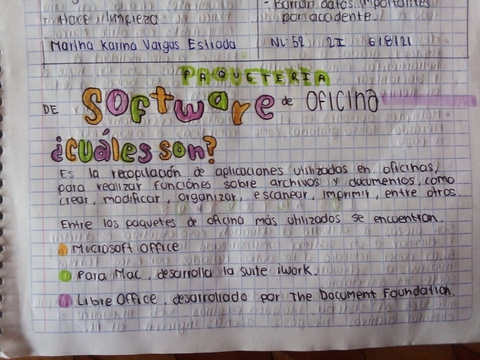 Hace limpieza
- Borran datos importantes
por accidente.
Martha Karina Vargas Estrada NL:52 2I 6/8/21
PAQUETERIA
DE Software de oficina
¿Cuáles son?
Es la recopilación de aplicaciones utilizados en oficinas,
para realizar funciones sobre archivos y documentos, como
crear, modificar, organizar, escanear, imprimir, entre otros.
Entre los paquetes de oficina más utilizados se encuentran.
Microsoft Office
Para Mac, desarrolla la suite iwork.
Libre Office, desarrollado por The Document Foundation.